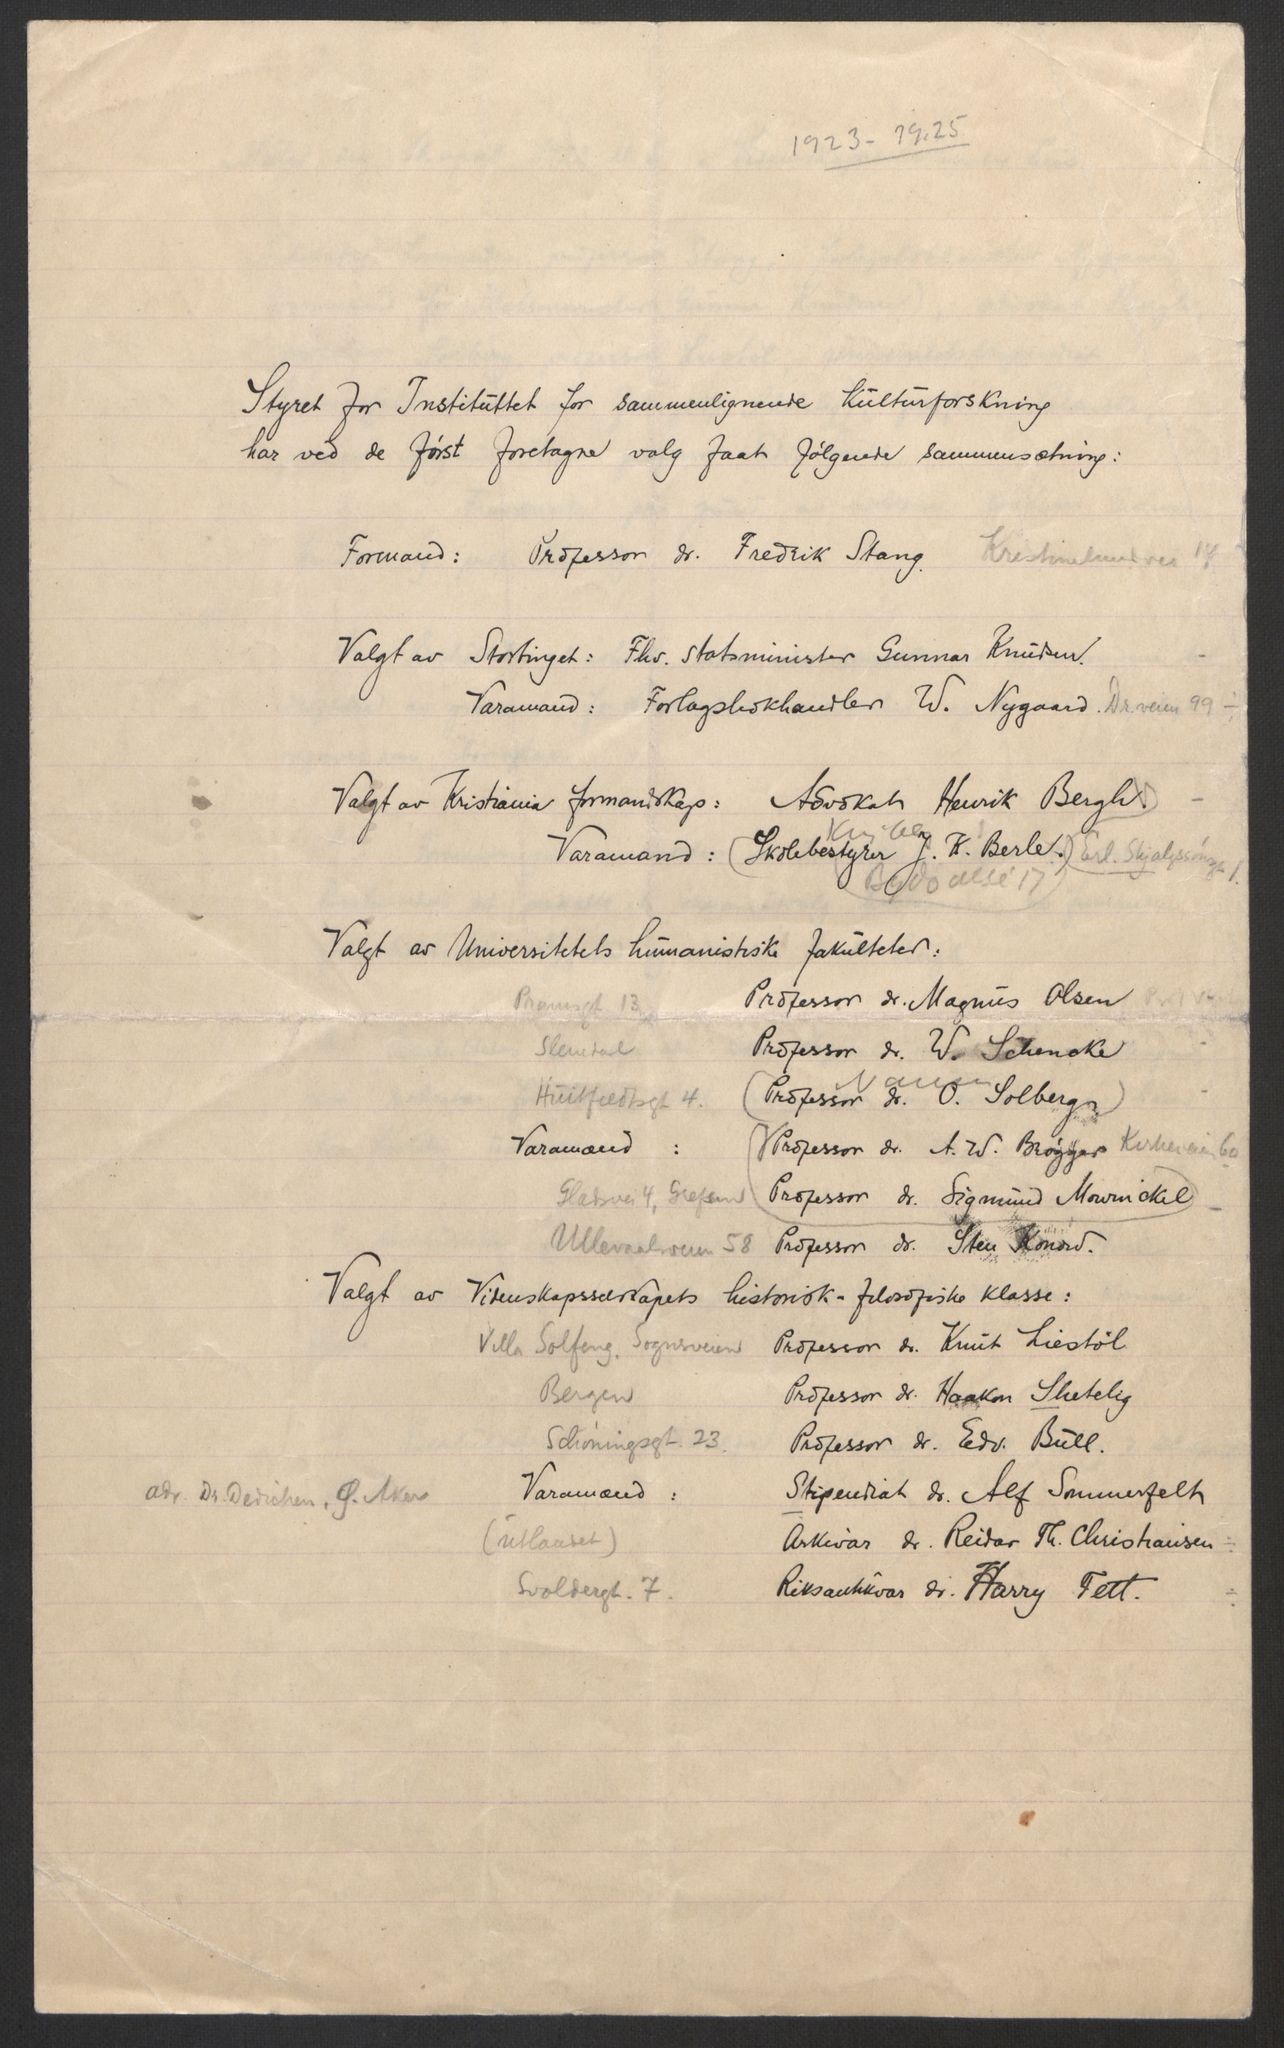 1923-1925
Styret for Instituttet for sammenlignende Kulturforskning
har ved de først foretagne valg faat følgende sammensætning:
Formand: Professor dr. Fredrik Stang. Kristinelundvei 14
Valgt av Stortinget: Fhv. statsminister Gunnar Knudsen. -
Varamand: Forlagsbokhandler W. Nygaard. Dr.veien 99 ÷
Valgt av Kristiania formandskap: Advokat Henrik Bergh) -
Varamand: (Skolebestyrer J. K. Berle.) Erl. Skjalgssønsgt 1.
Bygdø allé 17)
Valgt av Universitetets humanistiske fakulteter:
Pramsgt 13 Professor dr. Magnus Olsen
Slemdal Professor dr. W. Schencke -
Nansen
Huitfeldtsgt 4. (Professor dr. O. Solberg) -
Varamænd: Professor dr. A. W. Brøgger Kirkeveien 60
Gladsvei 4, Grefsen Professor dr. Sigmund Mowinckel -
Ullevaalsveien 58 Professor dr. Sten Konow.
Valgt av Videnskapsselskapets historisk-filosofiske klasse:
Villa Solfeng, Sognsveien Professor dr. Knut Liestøl
Bergen Professor dr. Haakon Shetelig
Schøningsgt. 23. Professor dr. Edv. Bull.
adr. Dr. Dedichen, Ø. Aker Varamænd: Stipendiat dr. Alf Sommerfelt
(utlandet) Arkivar dr. Reidar Th. Christiansen ÷
Svoldergt. 7. Riksantikvar dr. Harry Fett. ÷